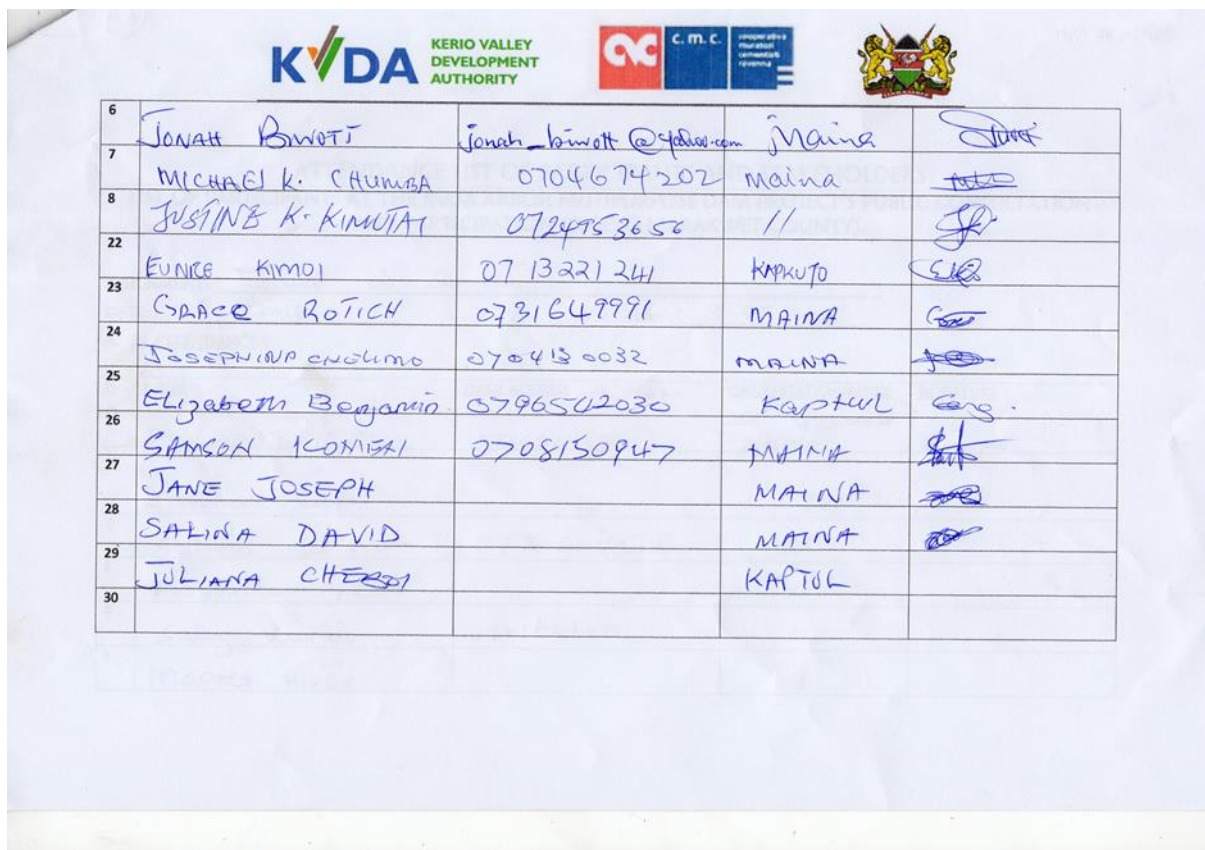 KVDA KERIO VALLEY
DEVELOPMENT
AUTHORITY
c.m.c.
cooperativa
muratori
cementisti
ravenna
6 JONAH BIWOTT jonah_biwott@yahoo.com Maina
7 MICHAEL K. CHUMBA 0704674202 Maina
8 JUSTINE K. KIMUTAI 0724953656 //
22 EUNICE KIMOI 0713221241 KAPKUTO
23 GRACE ROTICH 0731649991 MAINA
24 JOSEPHINE CHELIMO 0704130032 MAINA
25 ELizabeth Benjamin 0796542030 Kaptul
26 SAMSON 0708150947 MAINA
27 JANE JOSEPH MAINA
28 SALINA DAVID MAINA
29 JULIANA KAPTUL
30